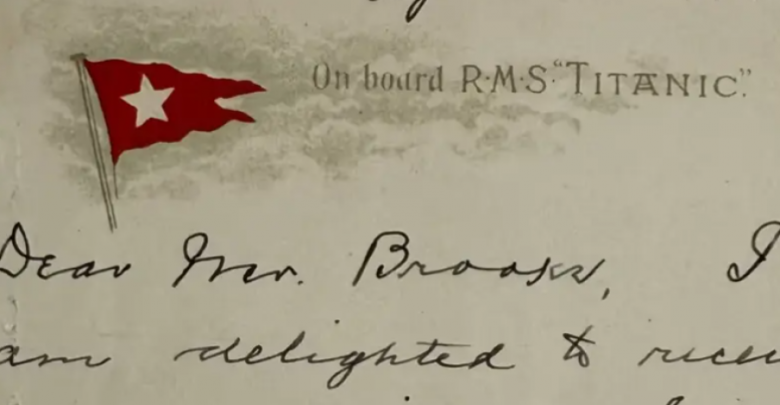 On board R·M·S·"TITANIC".
Dear Mr. Brooks, I
am delighted to recei